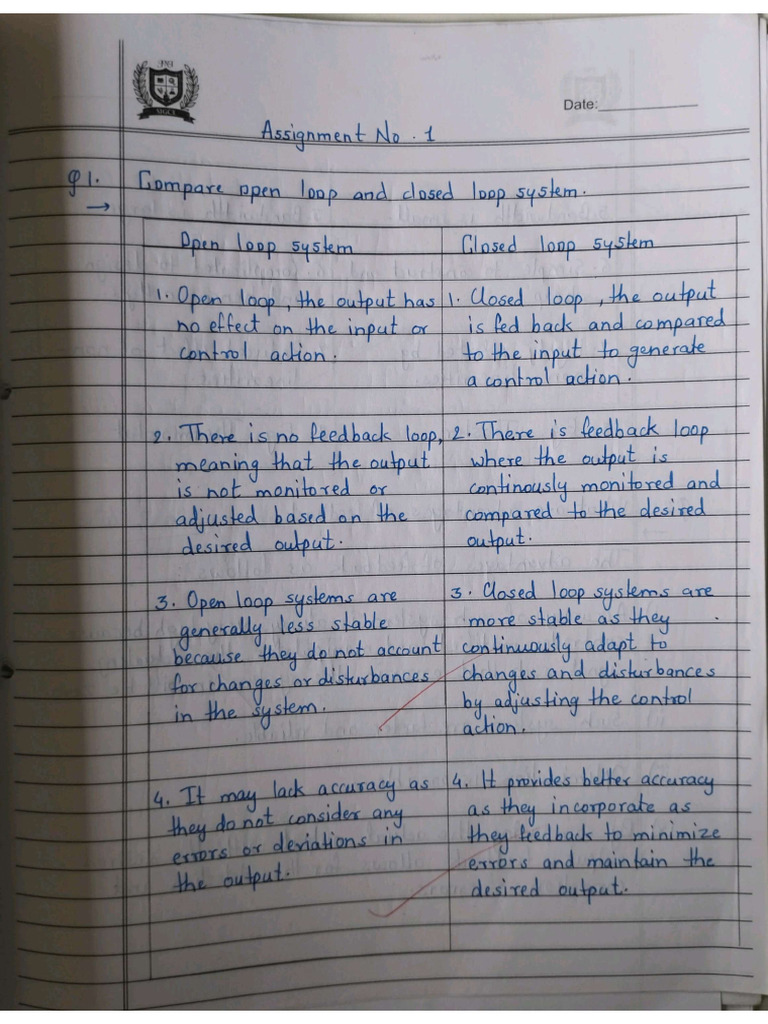 Date:
Assignment No. 1
Q1. Compare open loop and closed loop system.
→
Open loop system
Closed loop system
1. Open loop, the output has
no effect on the input or
control action.
1. Closed loop, the output
is fed back and compared
to the input to generate
a control action.
2. There is no feedback loop,
meaning that the output
is not monitored or
adjusted based on the
desired output.
2. There is feedback loop
where the output is
continously monitored and
compared to the desired
output.
3. Open loop systems are
generally less stable
because they do not account
for changes or disturbances
in the system.
3. Closed loop systems are
more stable as they
continuously adapt to
changes and disturbances
by adjusting the control
action.
4. It may lack accuracy as
they do not consider any
errors or deviations in
the output.
4. It provides better accuracy
as they incorporate as
they feedback to minimize
errors and maintain the
desired output.